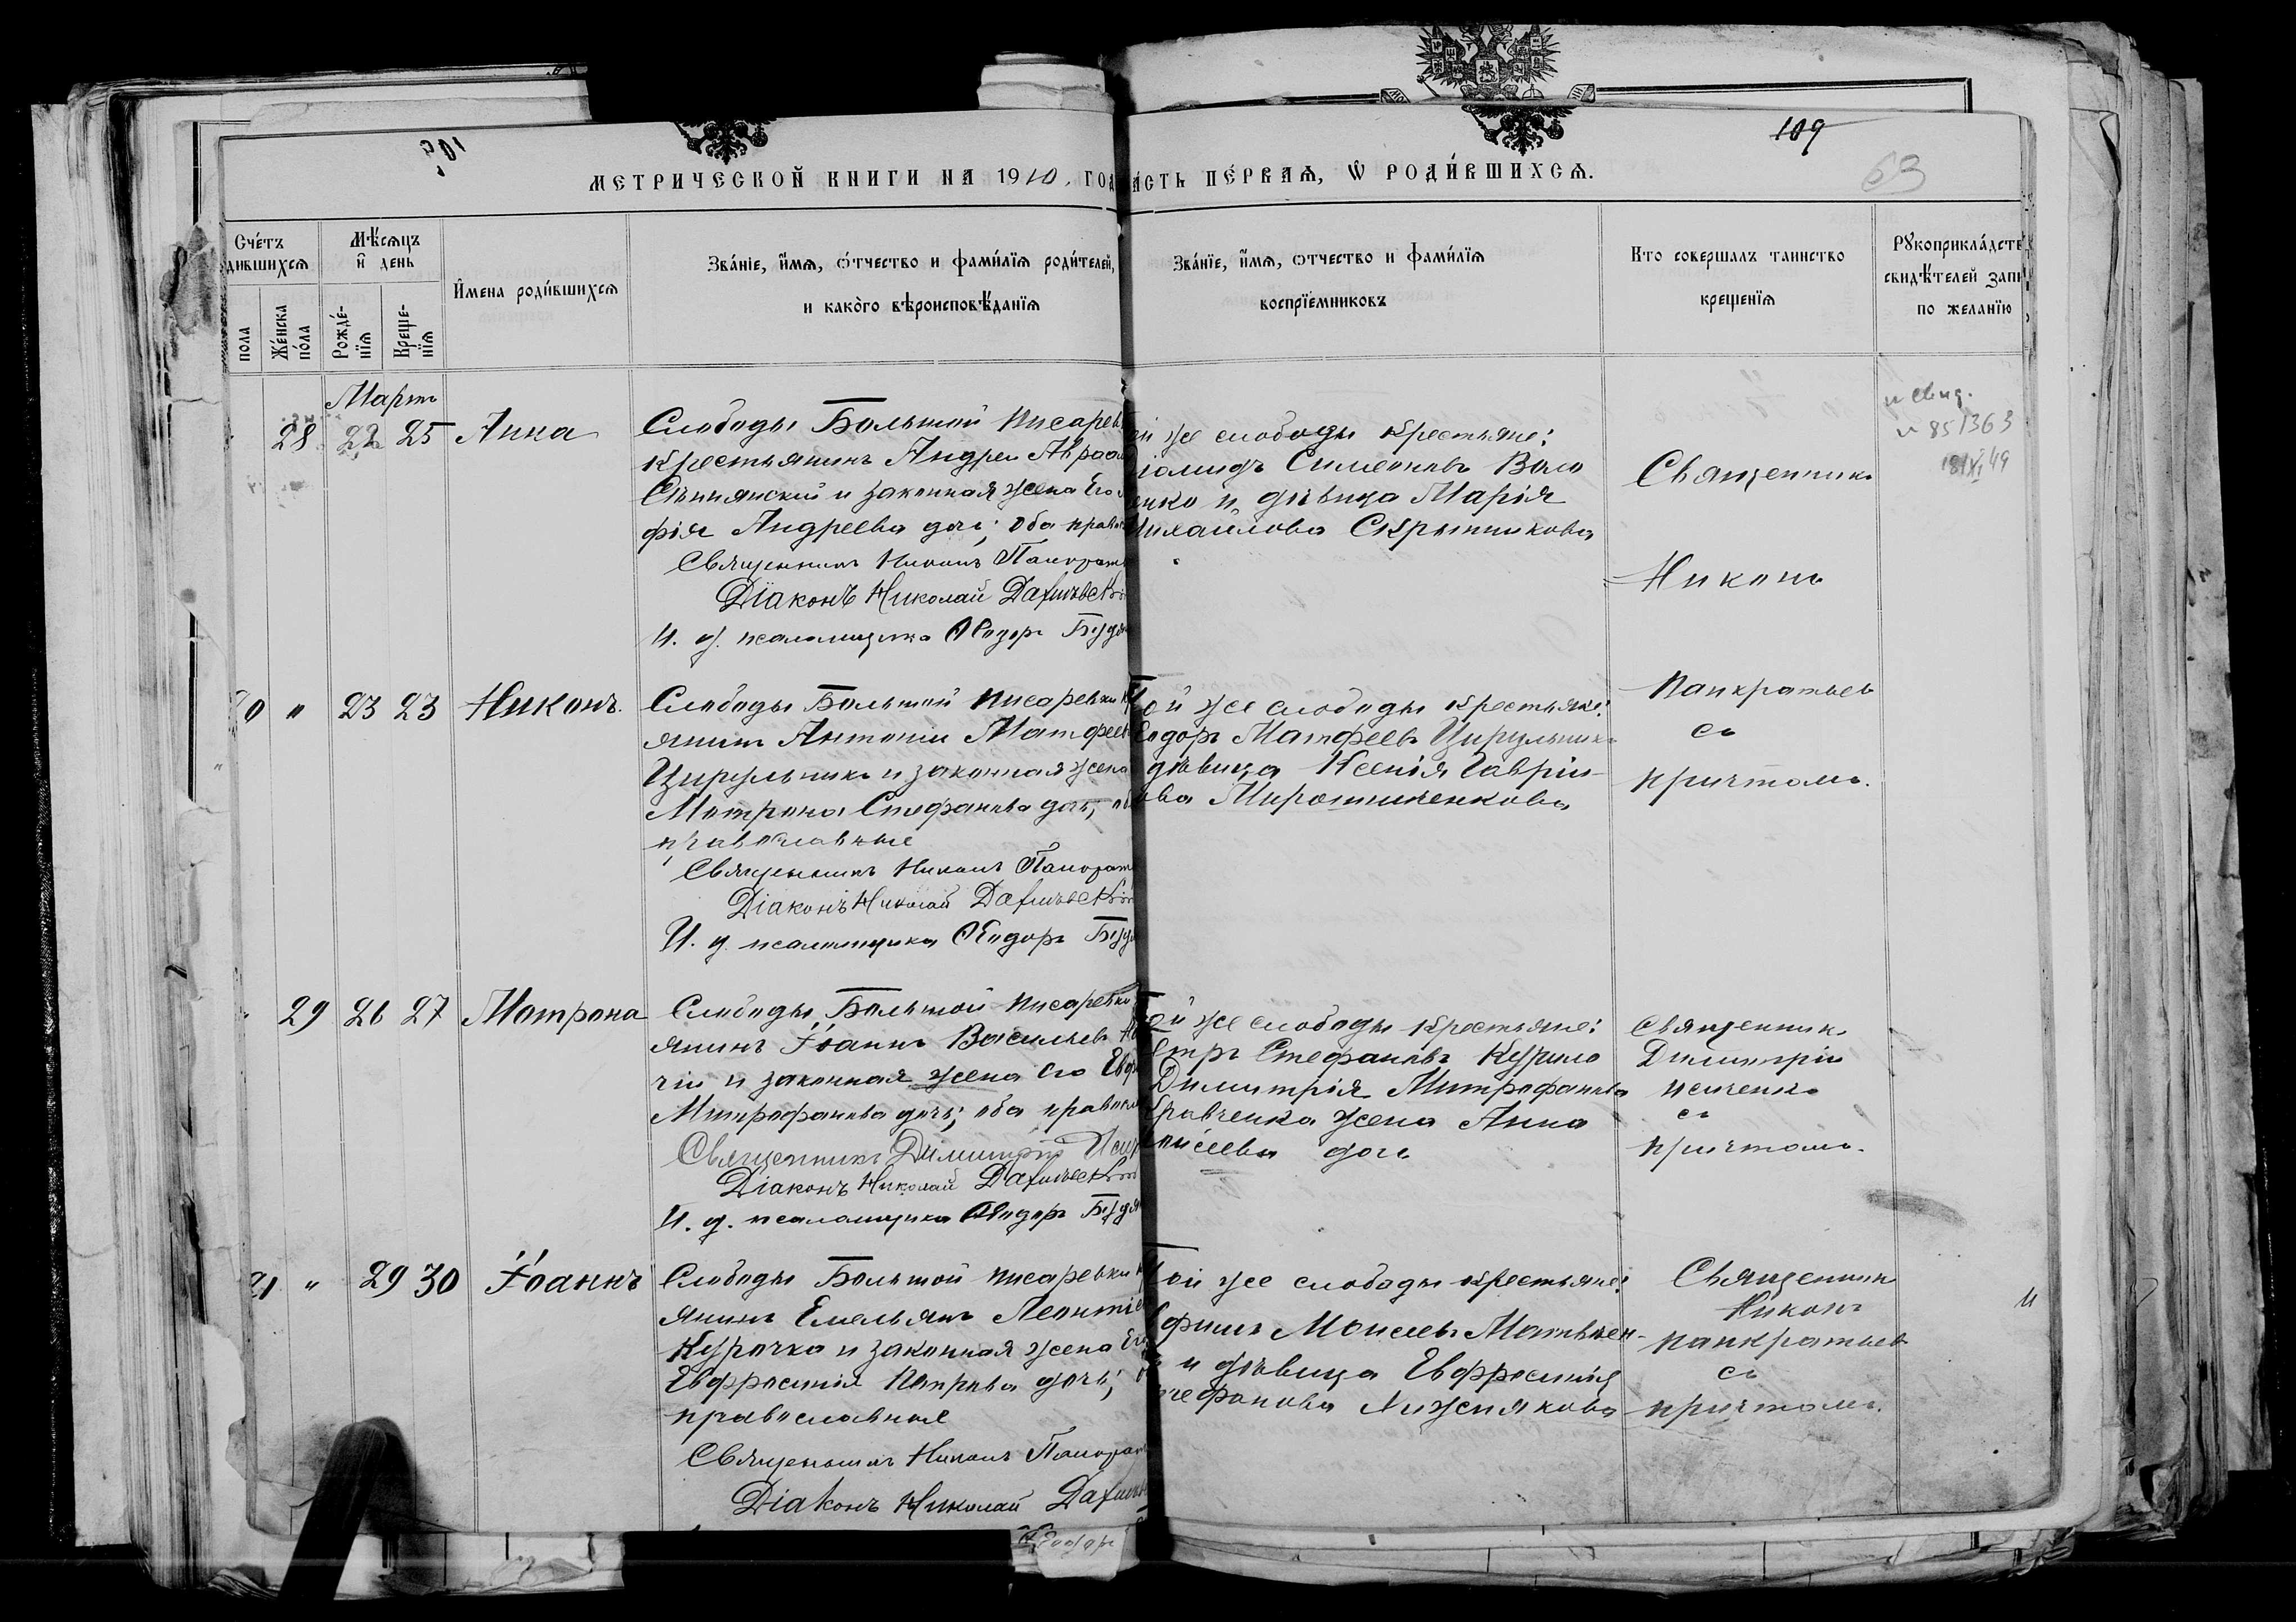 109
63
МЕТРИЧЕСКОЙ КНИГИ НА 1910. ГОД
АСТЬ ПЕ́РВАѦ, Ѡ РОДИ́ВШИХСѦ.
Сче́тъ
дившихсѧ
Мѣ́сѧцъ
и день
пола
Же́нска
по́ла
Рожде́-
нїѧ
Креще-
нїѧ
И́мена роди́вшихсѧ
Зва́нїе, и́мѧ, о́тчество и фами́лїѧ роди́телей,
и како́го вѣроисповѣ́данїѧ
Зва́нїе, и́мѧ, отчество и фами́лїѧ
воспрїе́мниковъ
Кто совершалъ таинство
крещенїѧ
Рꙋкоприкла́дств
свидѣ́телей запи
по желанїю
Мартъ
28 22 25 Анна
Слободы Большой Писарев
крестьянинъ Андрей Авраам
и законная жена Его
фія Андреева дочь; оба правос
Священникъ Никонъ Панкрать
Діаконъ Николай
И. д. псаломщика Ѳеодоръ
ой же слободы крестьяне:
Симеоновъ Воло
енко и дѣвица Марія
Михайлова Скрынникова
Священникъ
Никонъ
Панкратьев
съ
причтомъ.
и свид.
№ 851363
20 " 23 23 Никонъ.
Слободы Большой Писаревки к
янинъ Антоній Матфеев
Цирульникъ и законная жена
Матрона Стефанова дочь, об
православные
Священникъ Никонъ Панкрать
Діаконъ Николай
И. д. псаломщика Ѳеодоръ
Той же слободы крестьяне:
Ѳеодоръ Матфеевъ Цирульник
дѣвица Ксенія Гаврiи-
ова Мирошниченкова
29 26 27 Матрона
Слободы Большой Писаревки
янинъ Іоаннъ Васильевъ
чій и законная жена его Евф
Митрофанова дочь; оба правосл
Священникъ Димитрій Исич
Діаконъ Николай
И. д. псаломщика Ѳеодоръ
Той же слободы крестьяне:
Петръ Стефановъ Курило
Димитрія Митрофанова
Кравченка жена Анна
дочь
Священник
Димитрій
Исиченко
съ
причтомъ.
21 " 29 30 Іоаннъ
Слободы Большой Писаревки к
янинъ Емельянъ Леонтіе
Курочка и законная жена Ег
Евфросинія Петрова дочь; о
православные
Священникъ Никонъ Панкрат
Діаконъ Николай
Той же слободы крестьяне:
Ефимъ Моисеевъ Матвѣен-
и дѣвица Евфросинія
Стефанова Лижнякова
Священник
Никонъ
Панкратьев
съ
причтомъ.